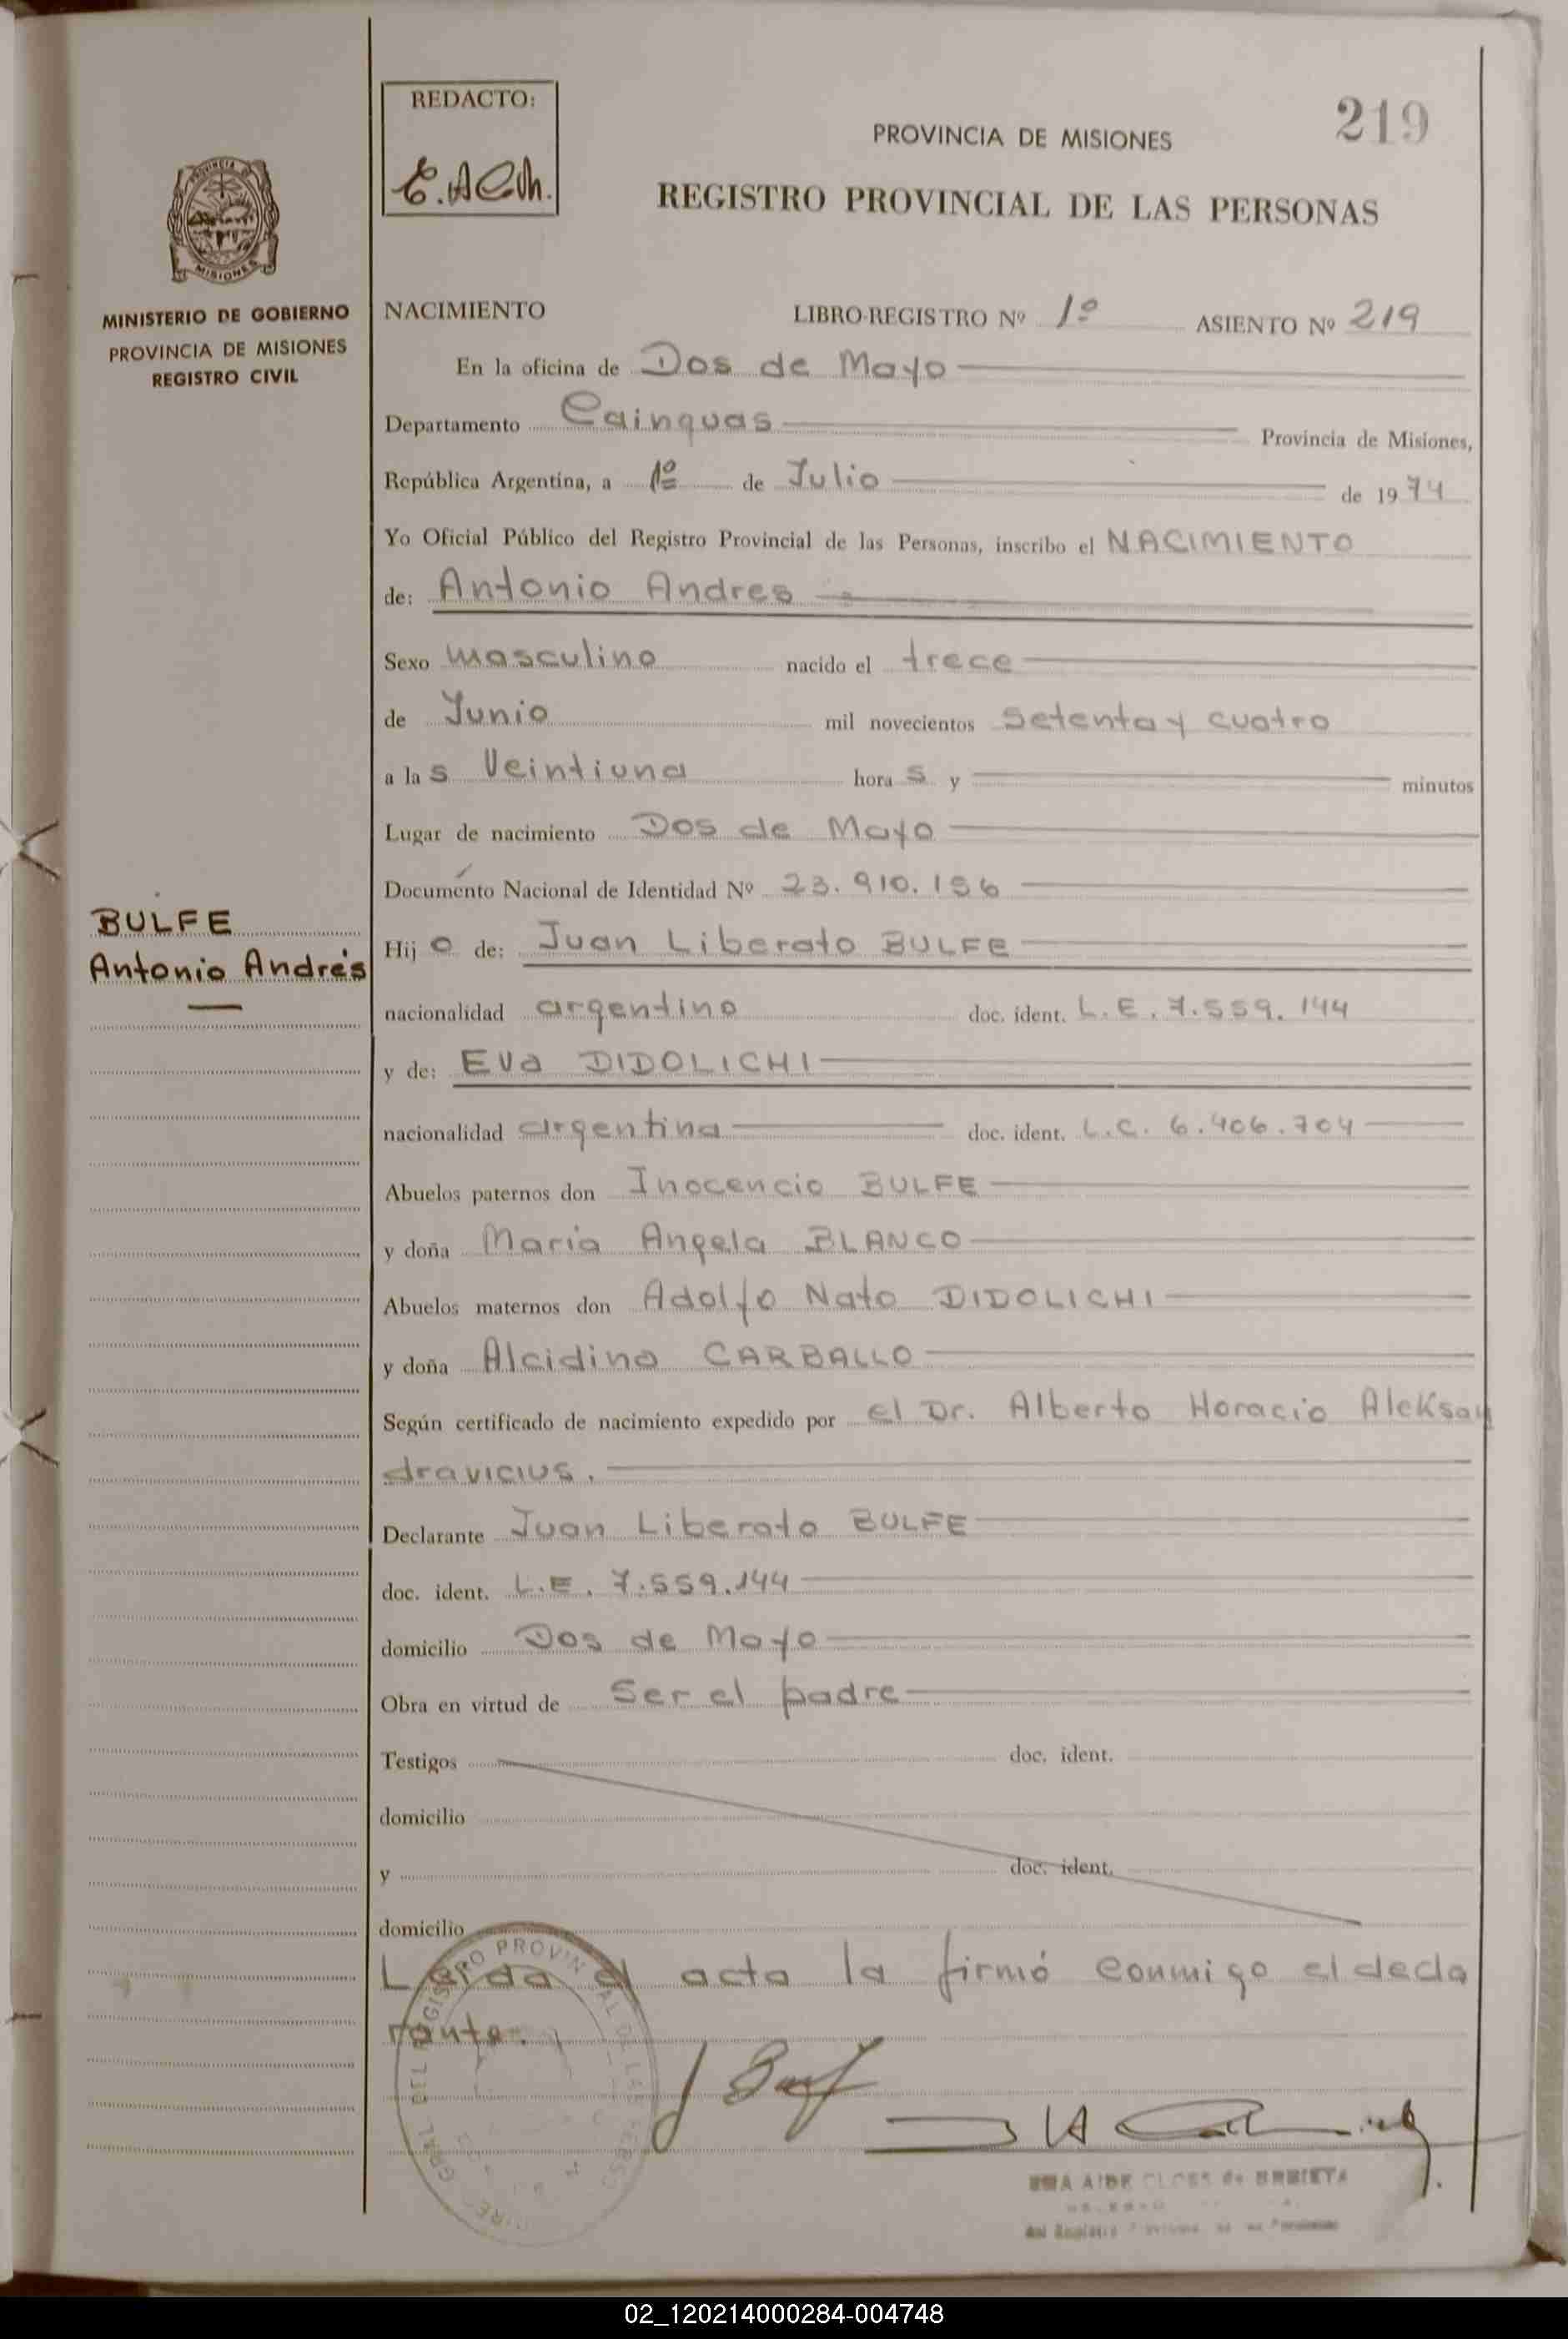 REDACTO:
E.ACM.
219
PROVINCIA DE MISIONES
REGISTRO PROVINCIAL DE LAS PERSONAS
PROVINCIA DE
MISIONES
MINISTERIO DE GOBIERNO
PROVINCIA DE MISIONES
REGISTRO CIVIL
NACIMIENTO LIBRO-REGISTRO Nº 1º ASIENTO Nº 219
En la oficina de Dos de Mayo
Departamento Cainguas Provincia de Misiones,
República Argentina, a 1º de Julio de 1974
Yo Oficial Público del Registro Provincial de las Personas, inscribo el NACIMIENTO
de: Antonio Andres
Sexo masculino nacido el trece
de Junio mil novecientos setenta y cuatro
a las Veintiuna horas y minutos
Lugar de nacimiento Dos de Mayo
Documento Nacional de Identidad Nº 23.910.156
BULFE
Antonio Andrés
Hijo de: Juan Liberato BULFE
nacionalidad argentino doc. ident. L.E. 7.559.144
y de: Eva DIDOLICHI
nacionalidad argentina doc. ident. L.C. 6.406.704
Abuelos paternos don Inocencio BULFE
y doña Maria Angela BLANCO
Abuelos maternos don Adolfo Nato DIDOLICHI
y doña Alcidina CARBALLO
Según certificado de nacimiento expedido por el Dr. Alberto Horacio Aleksan
dravicius.
Declarante Juan Liberato BULFE
doc. ident. L.E. 7.559.144
domicilio Dos de Mayo
Obra en virtud de ser el padre
Testigos doc. ident.
domicilio
y doc. ident.
domicilio
Leida el acta la firmó conmigo el decla
rante.
DEL REGISTRO PROVINCIAL DE LAS PERSO
AIDE CLOSS de
del Registro
02_120214000284-004748